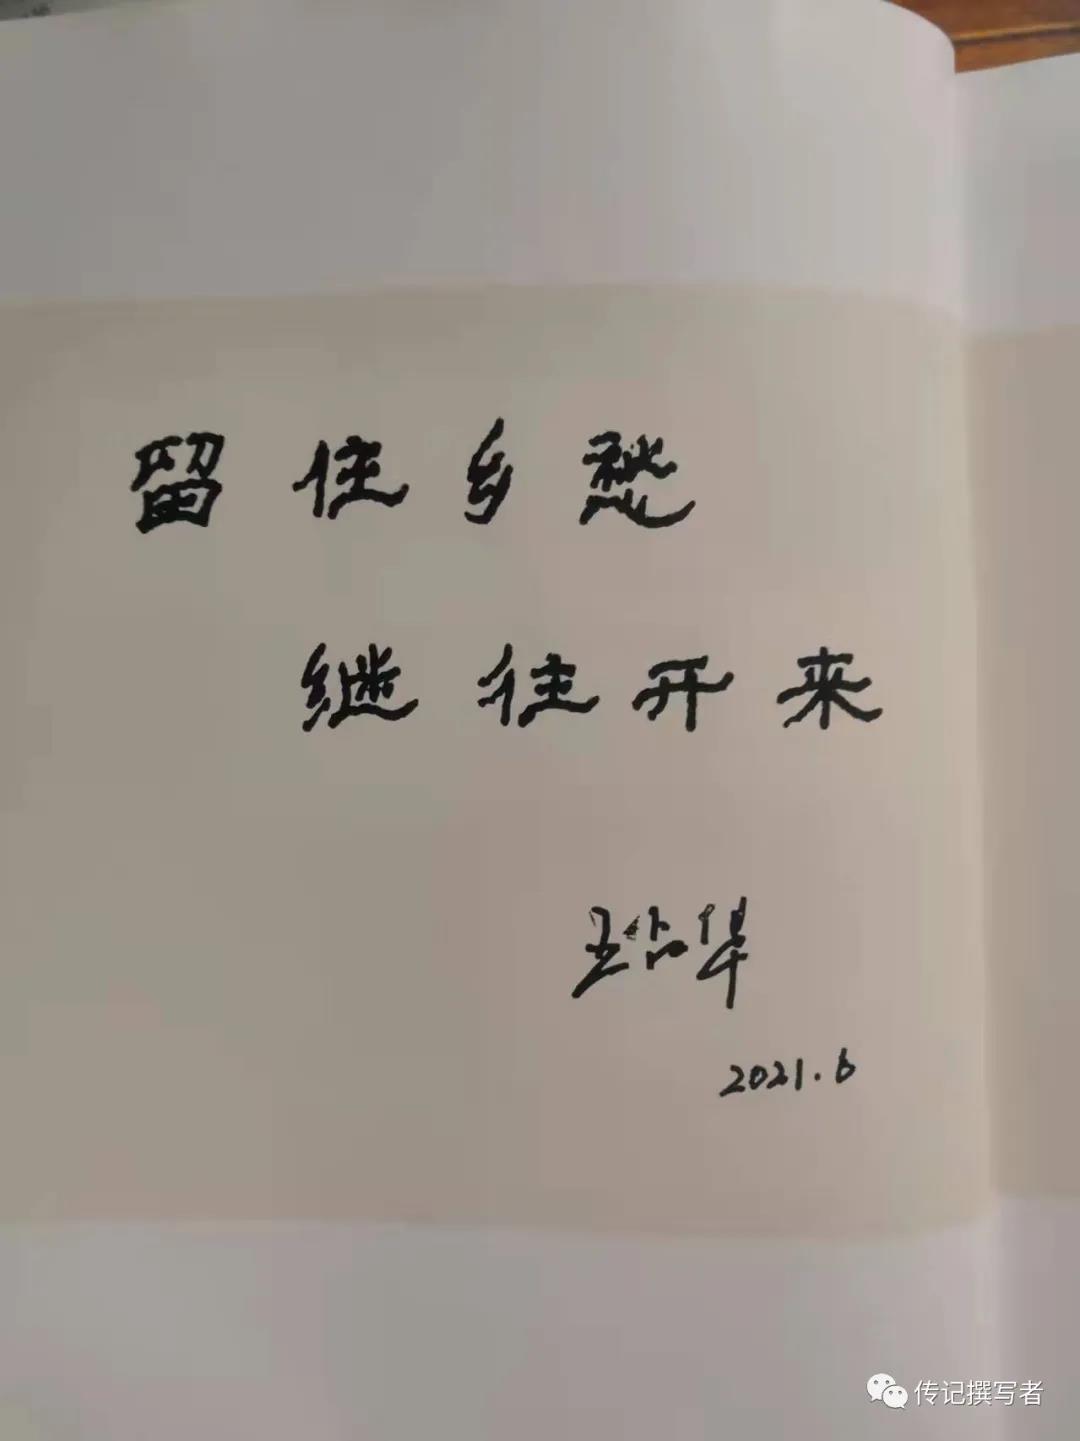 留住乡愁
继往开来
王占华
2021.6
传记撰写者